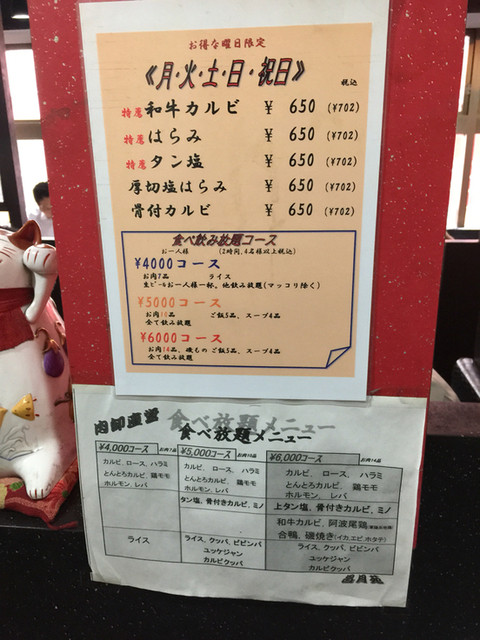 お得な曜日限定
《月・火・土・日・祝日》
税込
特選 和牛カルビ ¥ 650 (¥702)
特選 はらみ ¥ 650 (¥702)
特選 タン塩 ¥ 650 (¥702)
厚切塩はらみ ¥ 650 (¥702)
骨付カルビ ¥ 650 (¥702)
食べ飲み放題コース
お一人様 (2時間、4名様以上税込)
¥4000コース
お肉7品 ライス
生ビールお一人様一杯。他飲み放題(マッコリ除く)
¥5000コース
お肉10品 ご飯5品、スープ4品
全て飲み放題
¥6000コース
お肉14品、磯もの ご飯5品、スープ4品
全て飲み放題
肉卸直営 食べ放題メニュー
食べ放題メニュー
¥4,000コース お肉7品 ¥5,000コース お肉10品 ¥6,000コース お肉14品
カルビ、ロース、ハラミ カルビ、ロース、ハラミ カルビ、ロース、ハラミ
とんとろカルビ、鶏モモ とんとろカルビ、鶏モモ とんとろカルビ、鶏モモ
ホルモン、レバ ホルモン、レバ ホルモン、レバ
タン塩、骨付きカルビ、ミノ 上タン塩、骨付きカルビ、ミノ
和牛カルビ、阿波尾鶏
合鴨、磯焼き(イカ、エビ、ホタテ)
ライス ライス、クッパ、ビビンバ ライス、クッパ、ビビンバ
ユッケジャン ユッケジャン
カルビクッパ カルビクッパ